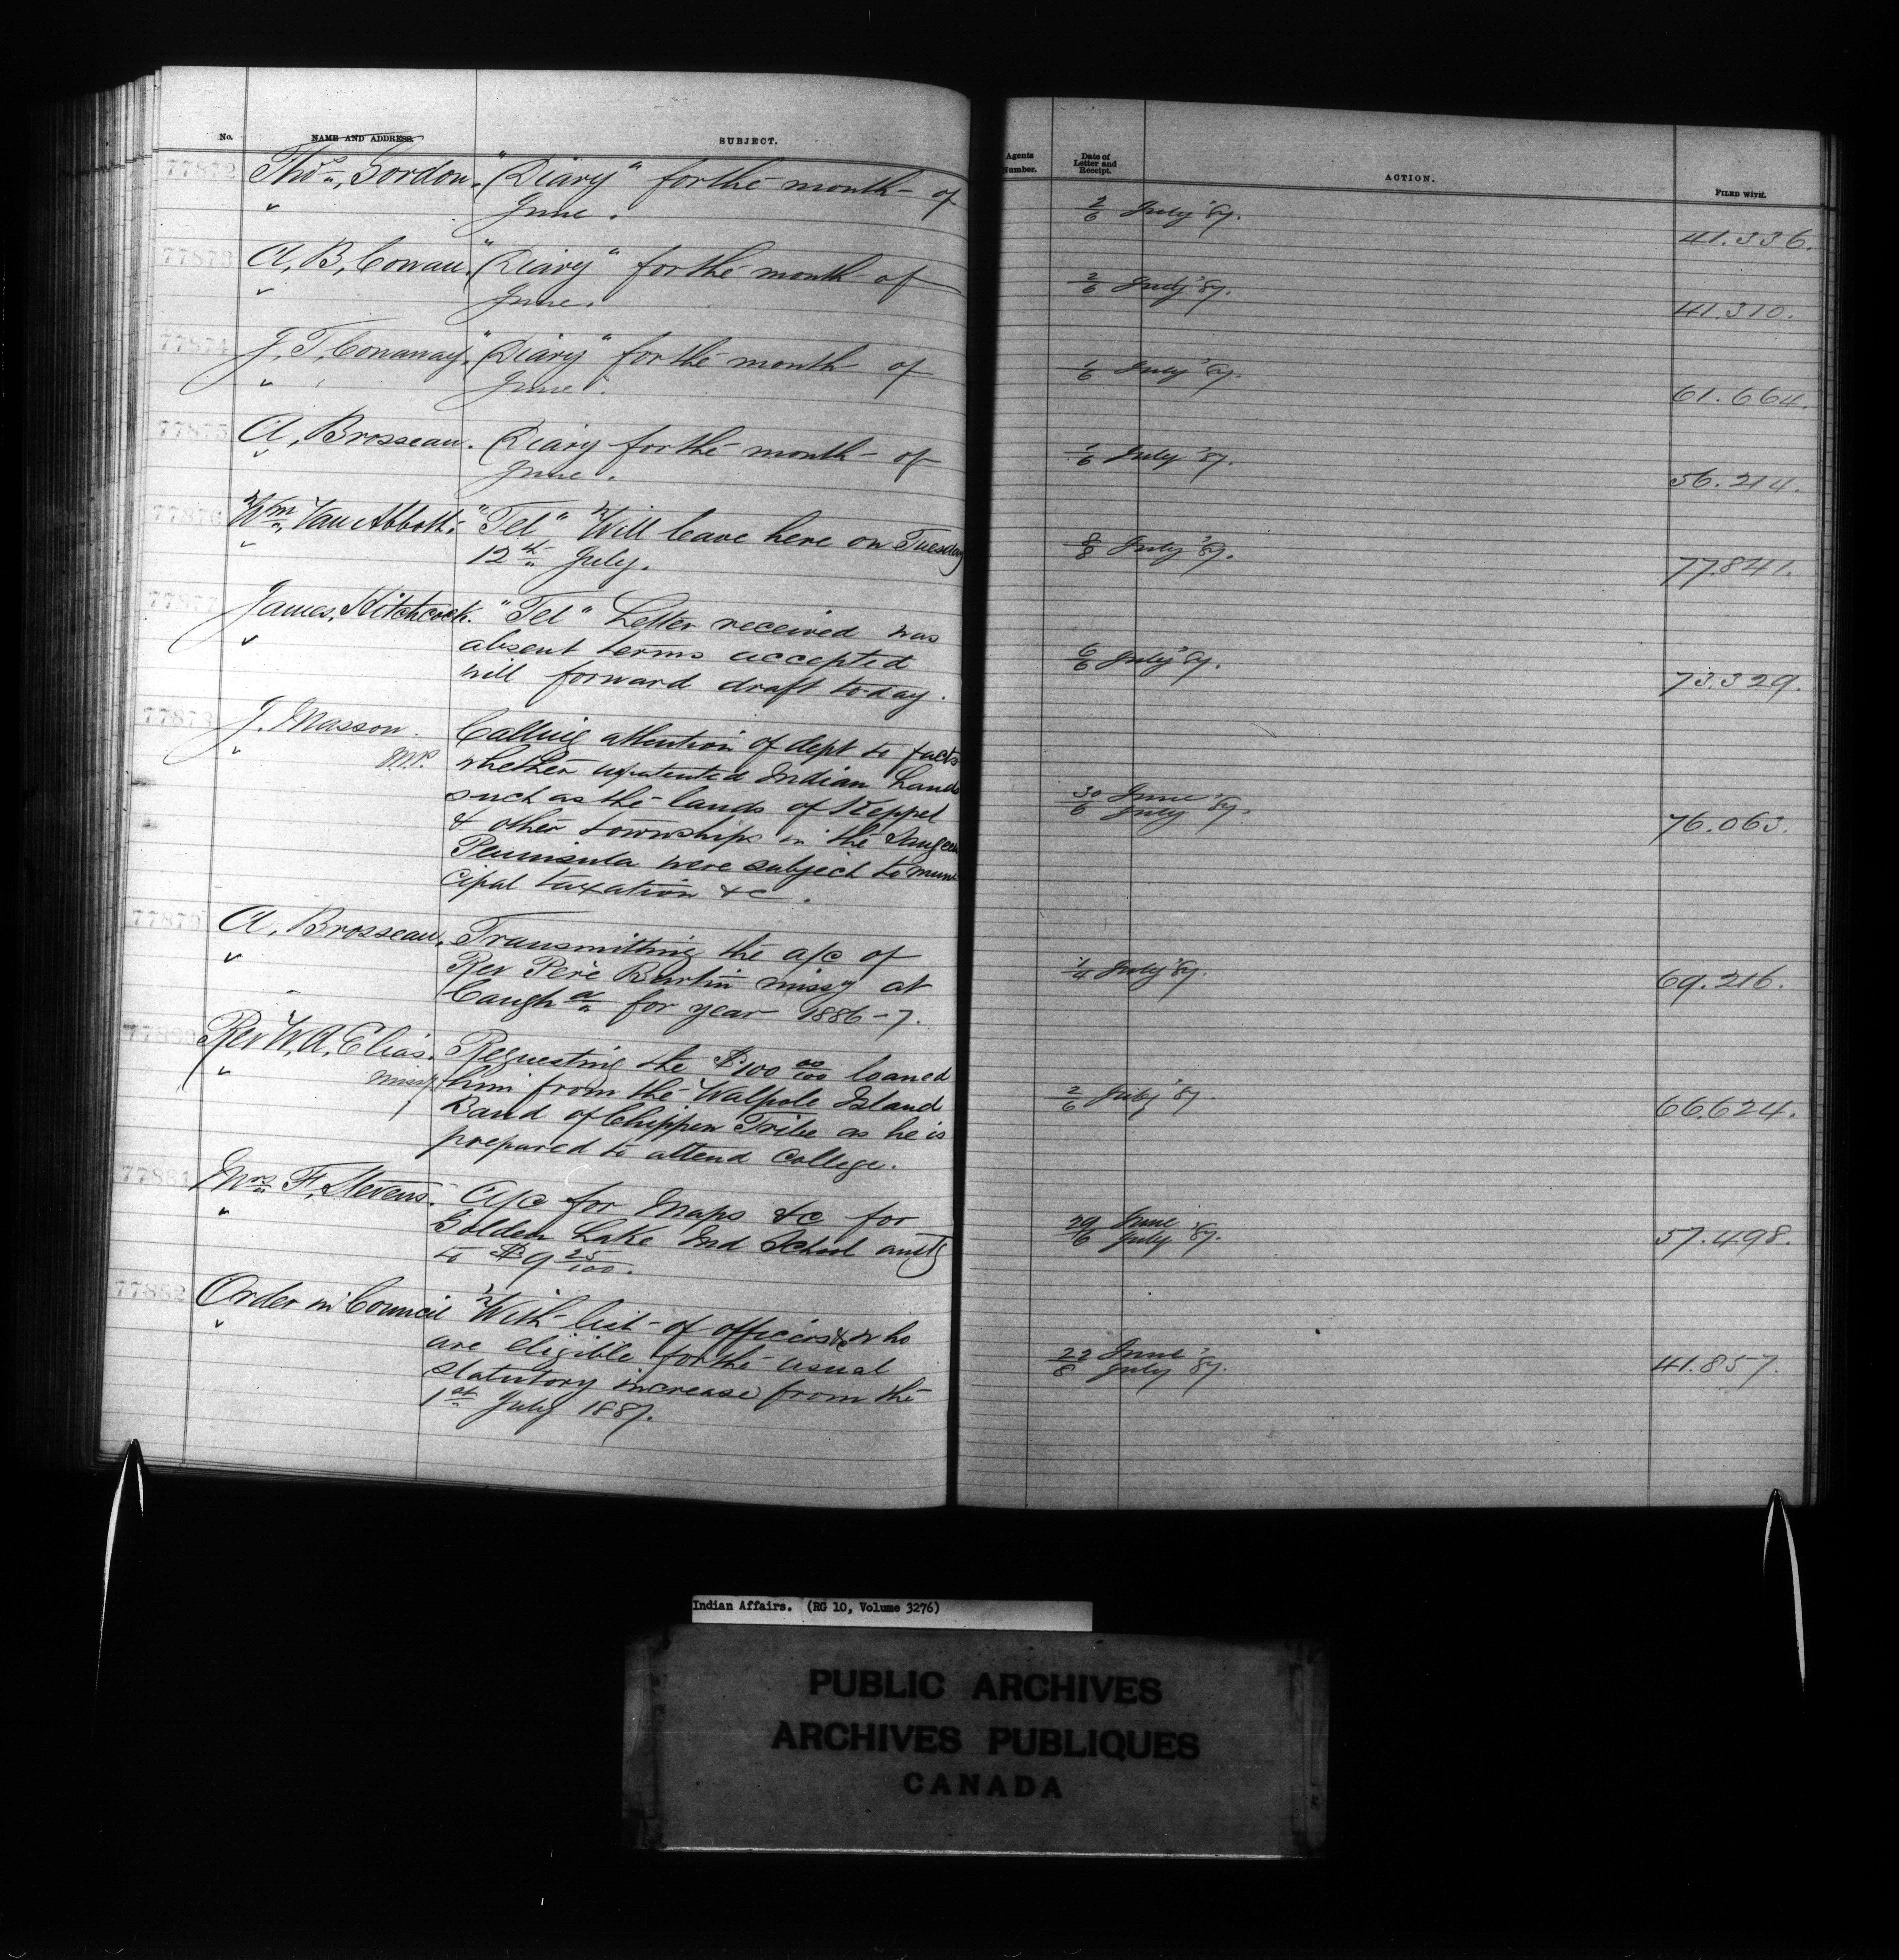 No. NAME AND ADDRESS. SUBJECT.
77872 Thos. Gordon. "Diary" for the month of
" June.
77873 A. B. Cowan. "Diary" for the month of
" June.
77874 J. T. Conaway. "Diary" for the month of
" June.
77875 A. Brosseau. Diary for the month of
" June.
77876 Wm. Van Abbott. "Tel" Will leave here on Tuesday
" 12th July.
77877 James Hitchcock. "Tel" Letter received was
" absent terms accepted
will forward draft to-day.
77878 J. Masson. Calling attention of dept to facts
" M.P. whether unpatented Indian Lands
such as the lands of Keppel
& other townships in the Saugeen
Peninsula were subject to muni
cipal taxation &c.
77879 A. Brosseau. Transmitting the a/c of
" Rev Père Burtin missy at
Caugha for year 1886-7.
77880 Rev W. A. Elias. Requesting the $100 00/100 loaned
" missy him from the Walpole Island
Band of Chippewa Tribe as he is
prepared to attend College.
77881 Mrs F. Stevens. A/c for Maps &c for
" Golden Lake Ind School amtg
to $9 25/100.
77882 Order in Council With list of officers &c who
" are eligible for the usual
statutory increase from the
1st July 1887.
Agents Number. Date of Letter and Receipt. ACTION. FILED WITH.
2/6 July '87. 41.336.
2/6 July '87. 41.310.
1/6 July '87. 61.664.
1/6 July '87. 56.214.
8/8 July '87. 77.841.
6/6 July '87. 73.329.
30/6 June/July '87. 76.063.
1/4 July '87. 69.216.
2/6 July '87. 66.624.
29/6 June/July '87. 57.498.
22/8 June/July '87. 41.857.
Indian Affairs. (RG 10, Volume 3276)
PUBLIC ARCHIVES
ARCHIVES PUBLIQUES
CANADA